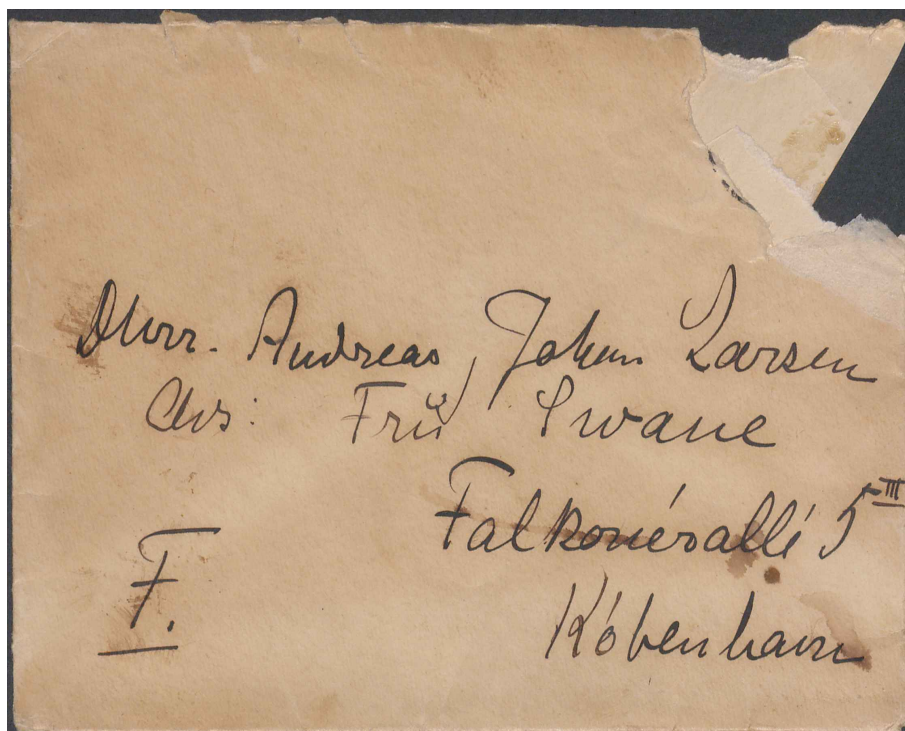 Dhrr. Andreas, Johan Larsen
Adrs: Frü Swane
Falkonérallé 5 III
København
F.